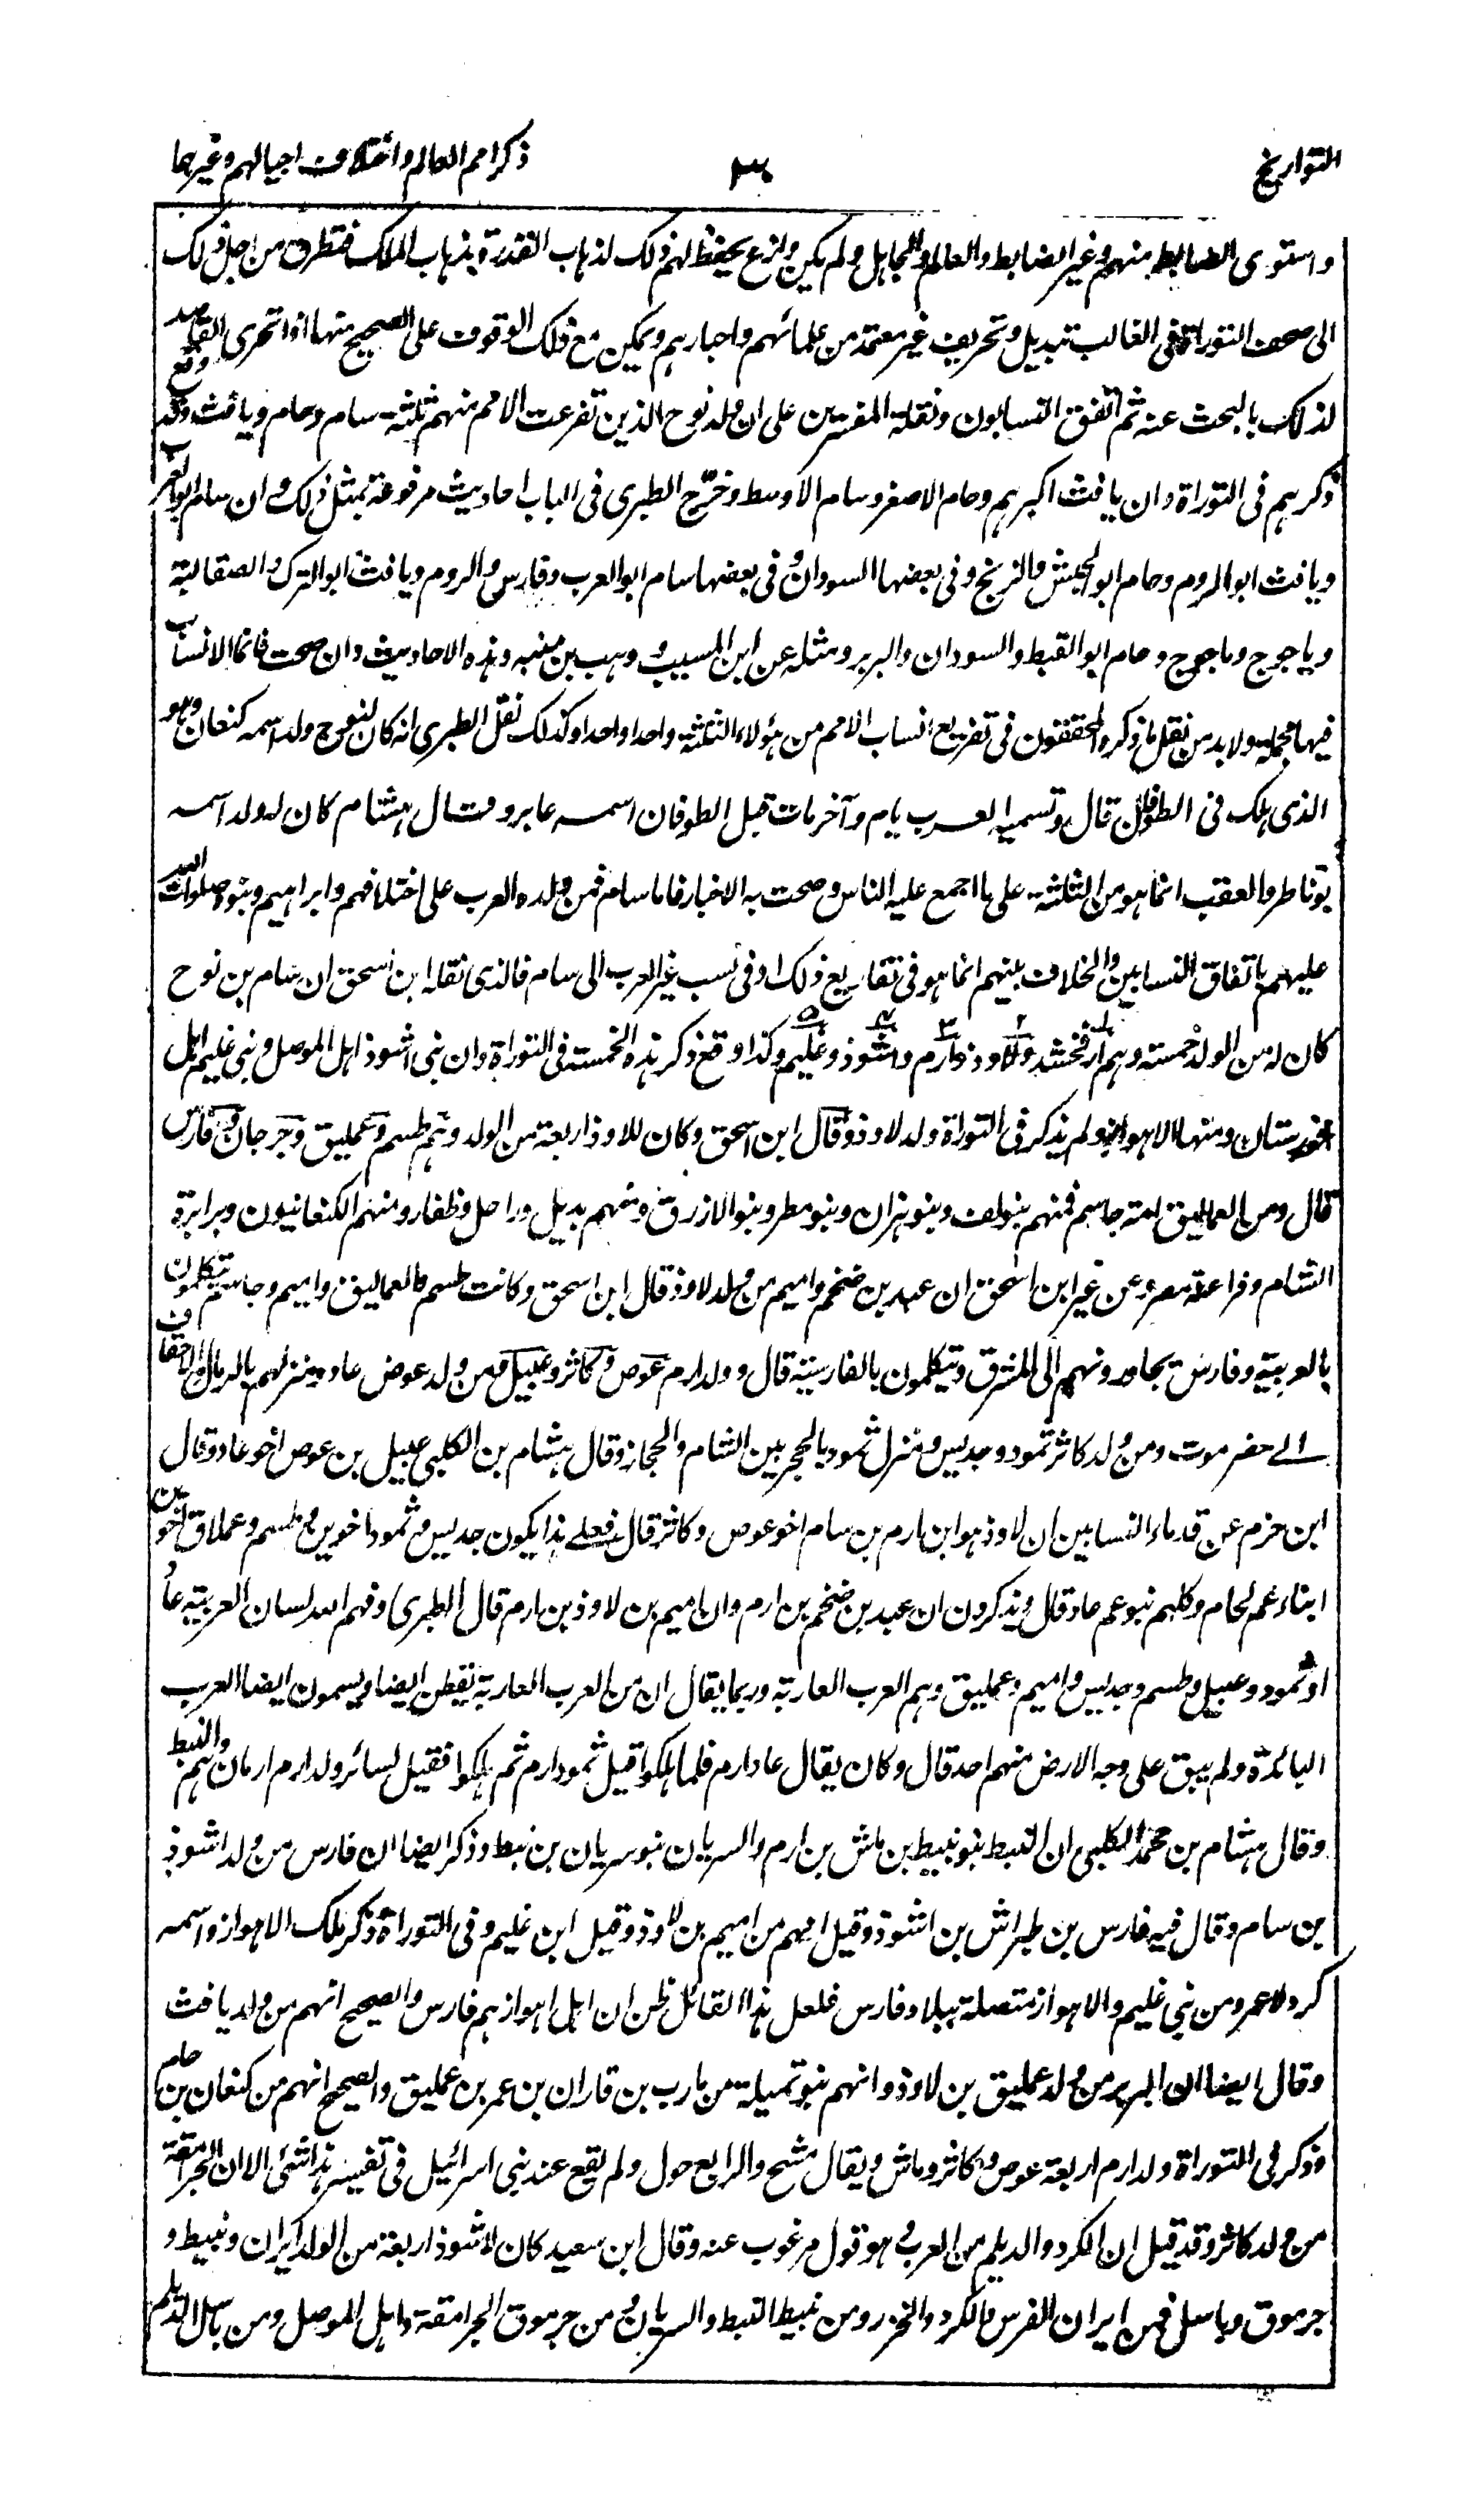 التواريخ
٣٤
ذكر امم العالم واختلاف اجيالهم وغيرها
واستوى الضابط منهم وغير الضابط والعالم والجاهل ولم يكن وازع يحفظ لهم ذلك لذهاب القدرة بذهاب الملك فتطرق من اجل ذلك
الى صحف التوراة فى الغالب تبديل وتحريف غير معتمد من علمائهم واحبارهم ويمكن مع ذلك الوقوف على الصحيح منها اذا تحرى القاصد
لذلك بالبحث عنه ثم اتفق النسابون ونقلة المفسرين على ان ولد نوح الذين تفرعت الامم منهم ثلثة سام وحام ويافث وقد وقع
ذكرهم فى التوراة وان يافث اكبرهم وحام الاصغر وسام الاوسط وخرّج الطبرى فى الباب احاديث مرفوعة بمثل ذلك وان سام ابو العرب
ويافث ابو الروم وحام ابو الحبش والزنج وفى بعضها السودان وفى بعضها سام ابو العرب وفارس والروم ويافث ابو الترك والصقالبة
وياجوج وماجوج وحام ابو القبط والسودان والبربر ومثله عن ابن المسيب ووهب بن منبه وهذه الاحاديث وان صحت فانما الانساب
فيها مجملة ولا بد من نقل ما ذكره المحققون فى تفريع انساب الامم من هؤلاء الثلثة واحدا واحدا وكذلك نقل الطبرى انه كان لنوح ولد اسمه كنعان وهو
الذى هلك فى الطوفان قال وتسميه العرب يام وآخر مات قبل الطوفان اسمه عابر وقال هشام كان له ولد اسمه
بوناطر والعقب انما هو من الثلثة على ما اجمع عليه الناس وصحت به الاخبار فاما سام فمن ولده العرب على اختلافهم وابراهيم وبنوه صلوات الله
عليهم باتفاق النسابين والخلاف بينهم انما هو فى تفاريع ذلك او فى نسب غير العرب الى سام فالذى نقله ابن اسحق ان سام بن نوح
كان له من الولد خمسة وهم ارفخشد ولاوذ وارم واشوذ وغليم وكذا وقع ذكر هذه الخمسة فى التوراة وان بنى اشوذ اهل الموصل وبنى غليم اهل
خورستان ومنها الاهواز ولم يذكر فى التوراة ولد لاوذ وقال ابن اسحق وكان للاوذ اربعة من الولد وهم طسم وعمليق وجرجان وفارس
قال ومن العماليق امة جاسم فمنهم بنو لف وبنو هزان وبنو مطر وبنو الازرق ومنهم بديل وراحل وظفار ومنهم الكنعانيون وبرابرة
الشام وفراعنة مصر وعن غير ابن اسحق ان عبد بن ضخم واميم من ولد لاوذ قال ابن اسحق وكانت طسم والعماليق واميم وجاسم يتكلمون
بالعربية وفارس يجاورونهم الى المشرق ويتكلمون بالفارسية قال وولد ارم عوص وكاثر وعبيل ومن ولد عوض عاد ومنزلهم بالرمال والاحقاف
الے حضرموت ومن ولد كاثر ثمود وجديس ومنزل ثمود بالحجر بين الشام والحجاز وقال هشام بن الكلبى عبيل بن عوص اخو عاد وقال
ابن حزم عن قدماء النسابين ان لاوذ هو ابن ارم بن سام اخو عوص وكاثر قال فعلے هذا يكون جديس وثمود اخوين وطسم وعملاق اخوين
ابناء عم لحام وكلهم بنو عم عاد قال ويذكرون ان عبد بن ضخم بن ارم وان اميم بن لاوذ بن ارم قال الطبرى وفهم الله لسان العربية عادا
وثمود وعبيل وطسم وجديس واميم وعمليق وهم العرب العاربة وربما يقال ان من العرب العاربة يقطن ايضا ويسمون ايضا العرب
البائدة ولم يبق على وجه الارض منهم احد قال وكان يقال عاد ارم فلما هلكوا قيل ثمود ارم ثم هلكوا فقيل لسائر ولد ارم ارمان وهم النبط
وقال هشام بن محمد الكلبى ان النبط بنو نبيط بن ماش بن ارم والسريان بنو سريان بن نبط وذكر ايضا ان فارس من ولد اشوذ
بن سام وقال فيه فارس بن طبراش بن اشوذ وقيل انهم من اميم بن لاوذ وقيل ابن غليم وفى التوراة ذكر ملك الاهواز واسمه
كردلاعمرو من بنى غليم والاهواز متصلة ببلاد فارس فلعل هذا القائل ظن ان اهل اهواز هم فارس والصحيح انهم من ولد يافث
وقال ايضا ان البربر من ولد عمليق بن لاوذ وانهم بنو تميلة من مارب بن قاران بن عمر بن عمليق والصحيح انهم من كنعان بن حام
وذكر فى التوراة ولد ارم اربعة عوص وكاثر وماش ويقال مشح والرابع حول ولم يقع عند بنى اسرائيل فى تفسير هذا شئ الا ان الجرامقة
من ولد كاثر وقد قيل ان الكرد والديلم من العرب وهو قول مرغوب عنه وقال ابن سعيد كان لاشوذ اربعة من الولد ايران ونبيط و
جرموق وباسل فمن ايران الفرس والكرد والخزر ومن نبيط النبط والسريان ومن جرموق الجرامقة واهل الموصل ومن باسل الديلم